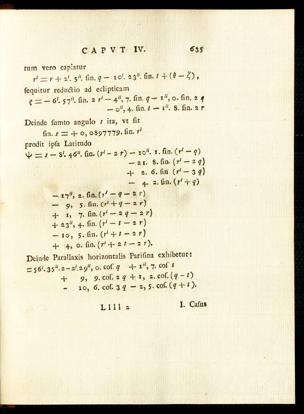 CAPVT IV. 635
tum vero capiatur
r' = r + 2'. 5". ſin. q − 10'. 23". ſin. t + (θ − ζ),
ſequitur reductio ad eclipticam
ξ = − 6'. 57". ſin. 2 r' − 4", 7. ſin. q − 1", 0. ſin. 2 q
− 0", 4. ſin. t − 1". 8. ſin. 2 r
Deinde ſumto angulo s ita, vt ſit
ſin. s = + 0, 0897779. ſin. r'
prodit ipſa Latitudo
Ψ = s − 8'. 46". ſin. (r' − 2 r) − 10". 1. ſin. (r' − q)
− 21. 8. ſin. (r' − 2 q)
+ 2. 6. ſin. (r' − 3 q)
− 4. 2. ſin. (r' + q)
− 17", 2. ſin. (r' − q − 2 r)
− 9, 5. ſin. (r' + q − 2 r)
+ 1, 7. ſin. (r' − 2 q − 2 r)
+ 23", 4. ſin. (r' − t − 2 r)
− 10, 5. ſin. (r' + t − 2 r)
+ 4, 0. ſin. (r' + 2 t − 2 r).
Deinde Parallaxis horizontalis Pariſina exhibetur:
= 56'. 35". 2 − 2'. 29", 0. coſ. q + 1", 7. coſ t
+ 9, 9. coſ. 2 q + 1, 2. coſ. (q − t)
− 10, 6. coſ. 3 q − 2, 5. coſ. (q + t).
Llll 2 I. Caſus